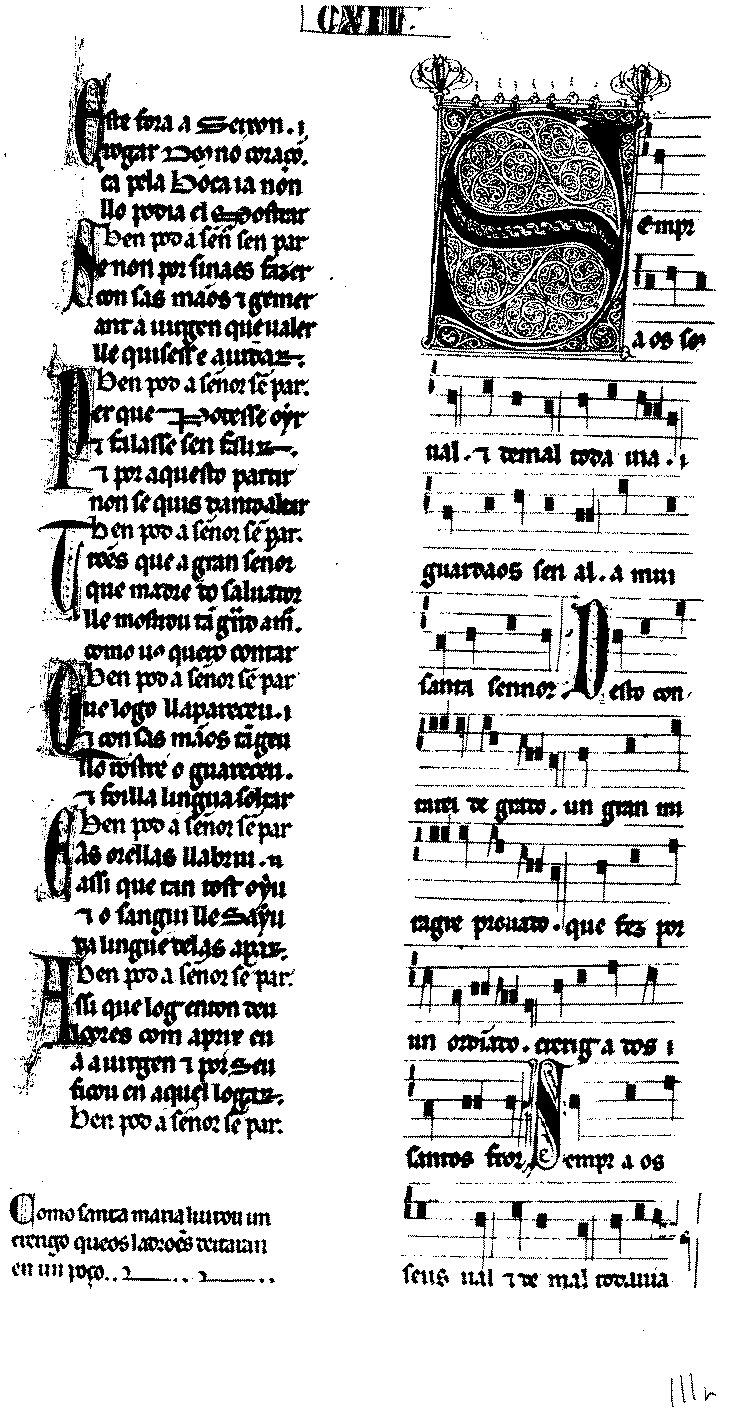 CXII.
Este fora a Seixon. ⁊
rogar Do ino coraçō.
ca pela boca ia non
llo podia el Mostrar
Ben pod a señ sen par
Se non por sinaes fazer
con sas mãos ⁊ gemer
ant a uirgen que ualer
lle quisesse aiudar.
Ben pod a señor sē par.
Per que Podesse oyr
⁊ falasse sen falir.
⁊ por aquesto partir
non se quis dant o altar
Ben pod a señor sē par.
Todes que a gran señor
que madre do saluador
lle mostrou tā grādo am̄.
como uos quero contar
Ben pod a señor sē par
Que logo ll apareceu. ⁊
⁊ con sas mãos tāgeu
llo rostre o guareceu.
⁊ foilla lingua soltar
Ben pod a señor sē par
E as orellas ll abriu.
assi que tan tost oyu
⁊ o sangui lle Sayu
da lingue delas apar.
Ben pod a señor sē par.
Assi que log enton deu
loores com aprix eu
a a uirgen ⁊ por Seu
ficou en aquel logar.
Ben pod a señor sē par.
Como santa maria liurou un
crerigo que os ladrōes deitaran
en un poço..
Sempr
a os seus
ual. ⁊ demal toda uia. ⁊
guardaos sen al. a mui
santa sennor. Desto con
tarei de grado. un gran mi
ragre prouado. que fez por
un ordīado. crerig a dos ⁊
santos fror Sempr a os
seus ual ⁊ de mal toda uia
111r